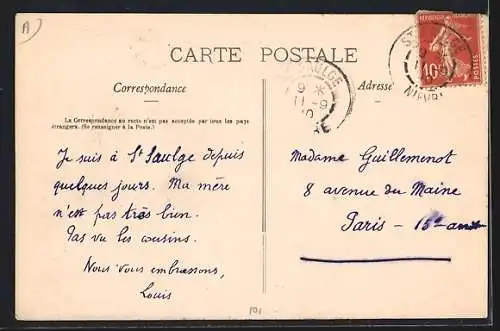 A
CARTE POSTALE
Correspondance
Adresse
La Correspondance au recto n'est pas acceptée par tous les pays
étrangers. (Se renseigner à la Poste.)
Je suis à St Saulge depuis
quelques jours. Ma mère
n'est pas très bien.
Pas vu les cousins.
Nous vous embrassons,
Louis
Madame Guillemenot
8 avenue du Maine
Paris – 15e arrt
RÉPUBLIQUE FRANÇAISE
10c
POSTES
ST SAULGE
NIÈVRE
SAULGE
9 *
11 -9
10
RE